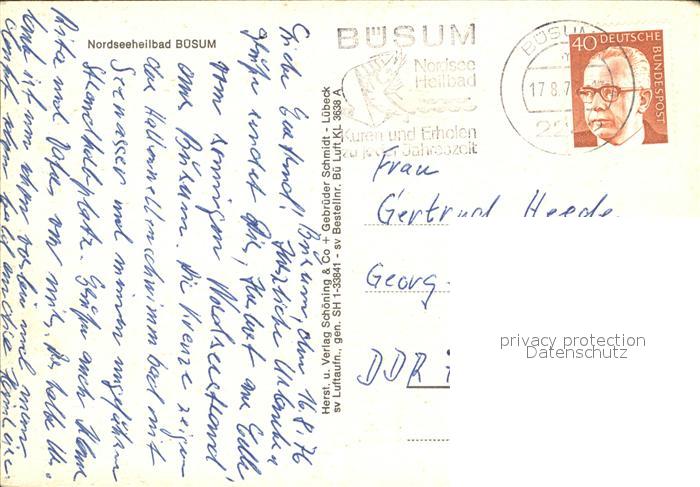 Nordseeheilbad BÜSUM
BÜSUM
Nordsee
Heilbad
Kuren und Erholen
zu jeder Jahreszeit
BÜSUM
17.8.7
22
40 DEUTSCHE BUNDESPOST
Herst. u. Verlag Schöning & Co + Gebrüder Schmidt - Lübeck
sv Luftaufn., gen. SH 1-33841 - sv Bestellnr. Bü Luft KL 3638 A
Büsum, den 16.8.76
Liebe Gertrud! Herzliche Urlaubs
grüße sendet Dir, Herbert und Edle
vom sonnigen Nordseestrand
aus Büsum. Die Kreuze zeigen
das Hallenwellenschwimmbad mit
Seewasser und meinen ungefähren
Strandkorbplatz. Grüße auch Hans
Rita und Vater von mir. Die halbe
Zeit ist nun schon vorbei und man
Frau
Gertrud Heede
Georg
DDR
privacy protection
Datenschutz